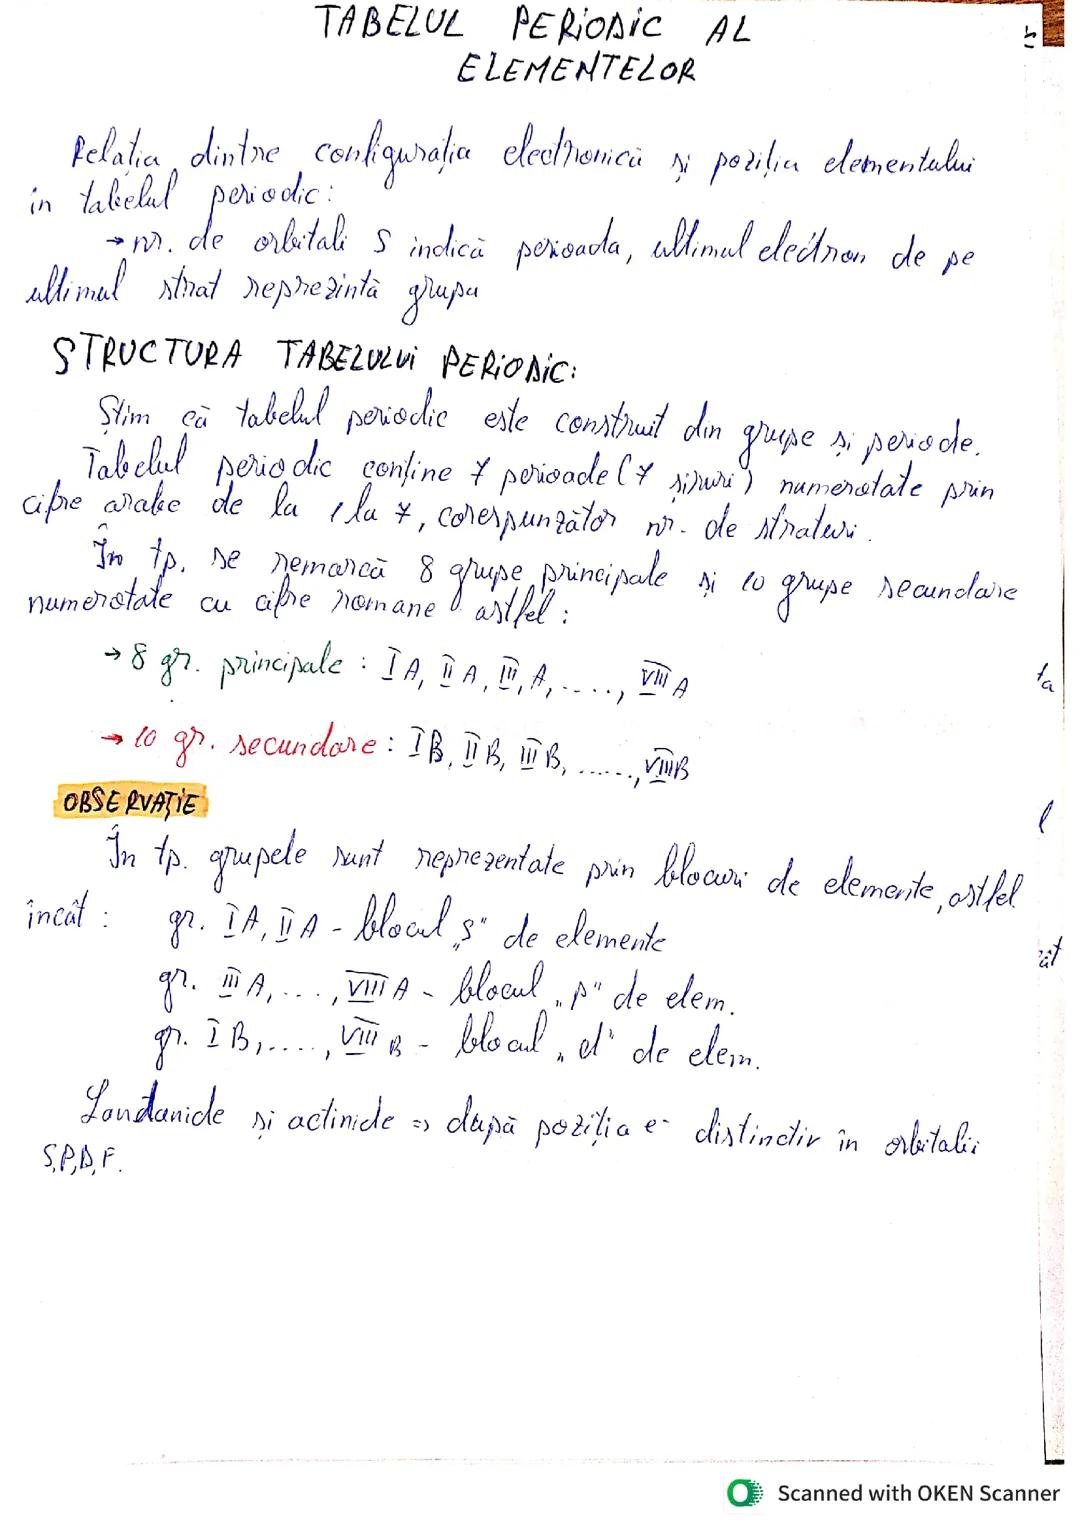 TABELUL PERIODIC AL
ELEMENTELOR
Relația dintre configurația electronică și poziția elementului
în tabelul periodic:
→ nr. de orbitali S indică perioada, ultimul electron de pe
ultimul strat reprezintă grupa
STRUCTURA TABELULUI PERIODIC:
Știm că tabelul periodic este construit din grupe și periode.
Tabelul periodic conține 7 perioade (7 șiruri) numerotate prin
cifre arabe de la 1 la 7, corespunzător nr. de straturi.
În tp. se remarcă 8 grupe principale și 10 grupe secundare
numerotate cu cifre romane astfel:
→ 8 gr. principale : I A, II A, III, A, ....., VIII A
→ 10 gr. secundare : I B, II B, III B, ......, VIII B
OBSERVAȚIE
În tp. grupele sunt reprezentate prin blocuri de elemente, astfel
încât : gr. I A, II A - blocul „s" de elemente
gr. III A, ...., VIII A - blocul „p" de elem.
gr. I B, ....., VIII B - blocul „d" de elem.
Lantanide și actinide => după poziția e⁻ distinctiv în orbitalii
S,P,D,F.
ta
l
ât
Scanned with OKEN Scanner